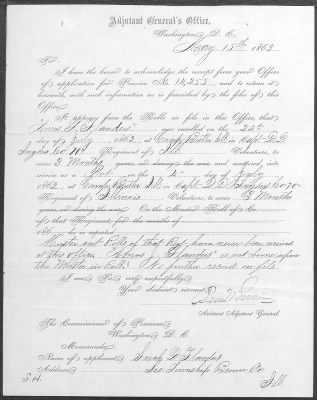 Adjutant General's Office,
Washington, D. C.
May 15th 1863
Sir:
I have the honor to acknowledge the receipt from your Office
of application for Pension No. 14,255, and to return it
herewith, with such information as is furnished by the files of this
Office.
It appears from the Rolls on file in this Office, that
Amos F. Flanders was enrolled on the 22nd
day of July 1862, at Camp Butler Ill in Capt. D. D.
Co. H 70 Regiment of Ill Volunteers, to
serve 3 Months years, or during the war, and mustered into
service as a on the 4" day of July
1862, at Camp Butler Ill, in Capt. D. D. Co. 70"
Regiment of Illinois Volunteers, to serve 3 Months
years, or during the war. On the Muster Roll of Co.
of that Regiment, for the months of
186 , he is reported
Muster out Rolls of that Regt have never been received
at this office. Amos F. Flanders is not borne upon
the Muster in Rolls. No further record on file.
I am, Sir, very respectfully,
Your obedient servant,
Assistant Adjutant General.
The Commissioner of Pensions
Washington, D. C.
Memoranda:
Name of applicant, Sarah D. Flanders
Address Lee Township Brown Co
Ill